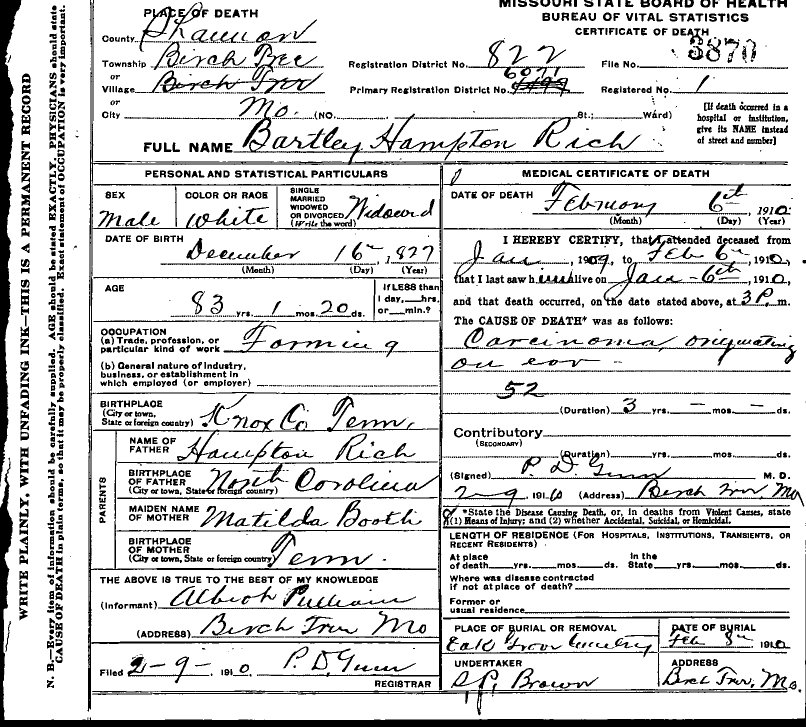 MISSOURI STATE BOARD OF HEALTH
BUREAU OF VITAL STATISTICS
CERTIFICATE OF DEATH
PLACE OF DEATH
County Shannon
Township Birch Tree
or
Village Birch Tree
or
City Mo. (NO. St.; Ward)
Registration District No. 822
File No. 3870
Primary Registration District No. 6071
Registered No. 1
[If death occurred in a
hospital or institution,
give its NAME instead
of street and number]
FULL NAME Bartley Hampton Rich
WRITE PLAINLY, WITH UNFADING INK—THIS IS A PERMANENT RECORD
N. B.—Every item of information should be carefully supplied. AGE should be stated EXACTLY. PHYSICIANS should state
CAUSE OF DEATH in plain terms, so that it may be properly classified. Exact statement of OCCUPATION is very important.
PERSONAL AND STATISTICAL PARTICULARS
SEX
Male
COLOR OR RACE
White
SINGLE
MARRIED
WIDOWED
OR DIVORCED
(Write the word)
Widowerd
DATE OF BIRTH
December 16, 1827
(Month) (Day) (Year)
AGE
83 yrs. 1 mos. 20 ds.
If LESS than
1 day,___hrs.
or___min.?
OCCUPATION
(a) Trade, profession, or
particular kind of work Farming
(b) General nature of industry,
business, or establishment in
which employed (or employer)
BIRTHPLACE
(City or town,
State or foreign country) Knox Co Tenn.
PARENTS
NAME OF
FATHER Hampton Rich
BIRTHPLACE
OF FATHER
(City or town, State or foreign country) North Carolina
MAIDEN NAME
OF MOTHER Matilda Booth
BIRTHPLACE
OF MOTHER
(City or town, State or foreign country) Tenn.
THE ABOVE IS TRUE TO THE BEST OF MY KNOWLEDGE
(Informant) Pulliam
(ADDRESS) Birch Tree Mo
Filed 2-9-, 1910 P. D. Gunn
REGISTRAR
MEDICAL CERTIFICATE OF DEATH
DATE OF DEATH February 6th, 1910
(Month) (Day) (Year)
I HEREBY CERTIFY, that I attended deceased from
Jan, 1909, to Feb 6, 1910,
that I last saw him alive on Jan-6th, 1910,
and that death occurred, on the date stated above, at 3 P. m.
The CAUSE OF DEATH* was as follows:
Carcinoma, originating
on ear -
52
(Duration) 3 yrs. - mos. - ds.
Contributory
(SECONDARY)
(Duration) yrs. mos. ds.
(Signed) P. D. Gunn M. D.
2-9, 1910 (Address) Birch Tree Mo
*State the Disease Causing Death, or, in deaths from Violent Causes, state
(1) Means of Injury; and (2) whether Accidental, Suicidal, or Homicidal.
LENGTH OF RESIDENCE (FOR HOSPITALS, INSTITUTIONS, TRANSIENTS, OR
RECENT RESIDENTS)
At place
of death___yrs.___mos.___ds.
In the
State___yrs.___mos.___ds.
Where was disease contracted
if not at place of death?
Former or
usual residence
PLACE OF BURIAL OR REMOVAL
Oak Grove Cemetery
DATE OF BURIAL
Feb 8th 1910
UNDERTAKER
Brown
ADDRESS
Birch Tree, Mo.